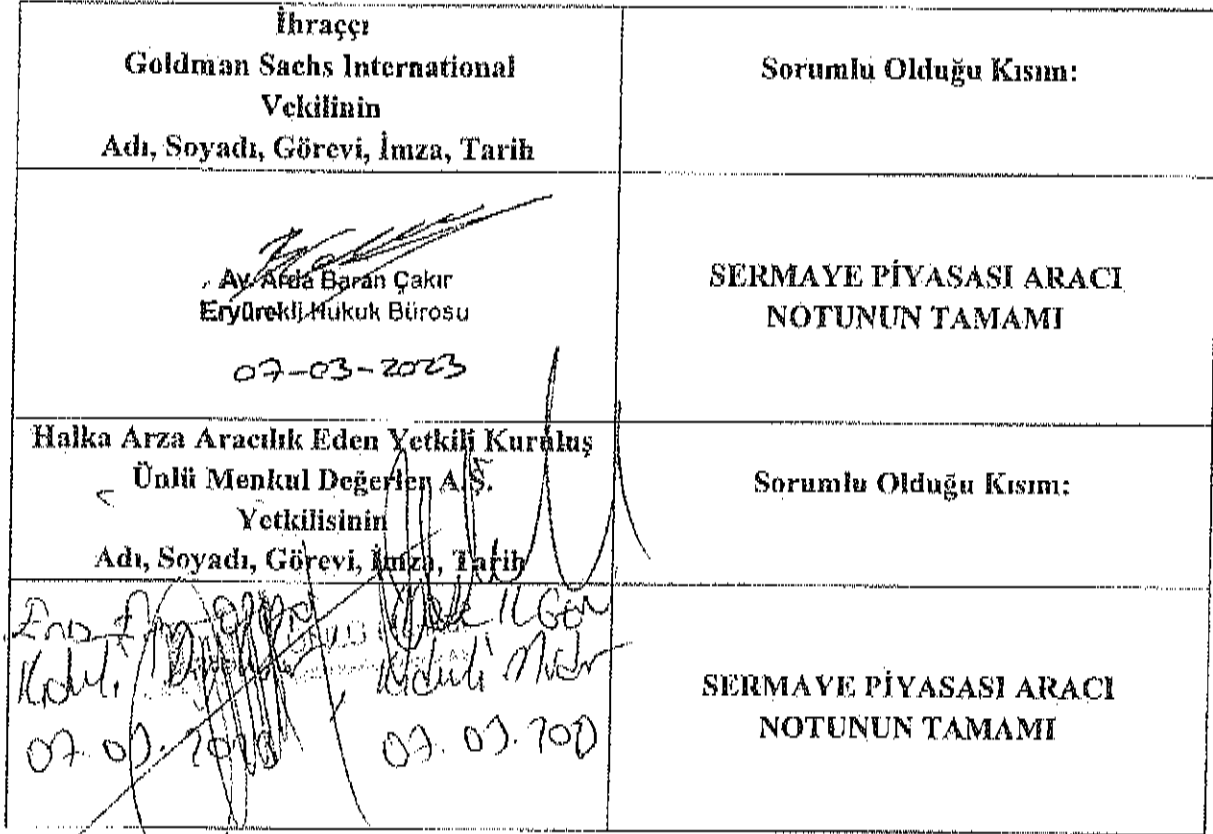 İhraççı
Goldman Sachs International
Vekilinin
Adı, Soyadı, Görevi, İmza, Tarih
Sorumlu Olduğu Kısım:
Av. Arda Baran Çakır
Eryürekli Hukuk Bürosu
07-03-2023
SERMAYE PİYASASI ARACI
NOTUNUN TAMAMI
Halka Arza Aracılık Eden Yetkili Kuruluş
Ünlü Menkul Değerler A.Ş.
Yetkilisinin
Adı, Soyadı, Görevi, İmza, Tarih
Sorumlu Olduğu Kısım:
SERMAYE PİYASASI ARACI
NOTUNUN TAMAMI